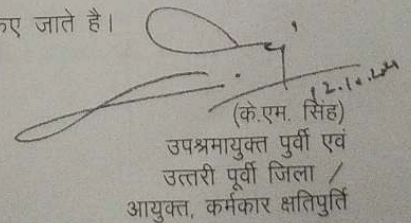 किए जाते है।
(के.एम. सिंह)
उपश्रमायुक्त पुर्वी एवं
उत्तरी पूर्वी जिला /
आयुक्त, कर्मकार क्षतिपुर्ति